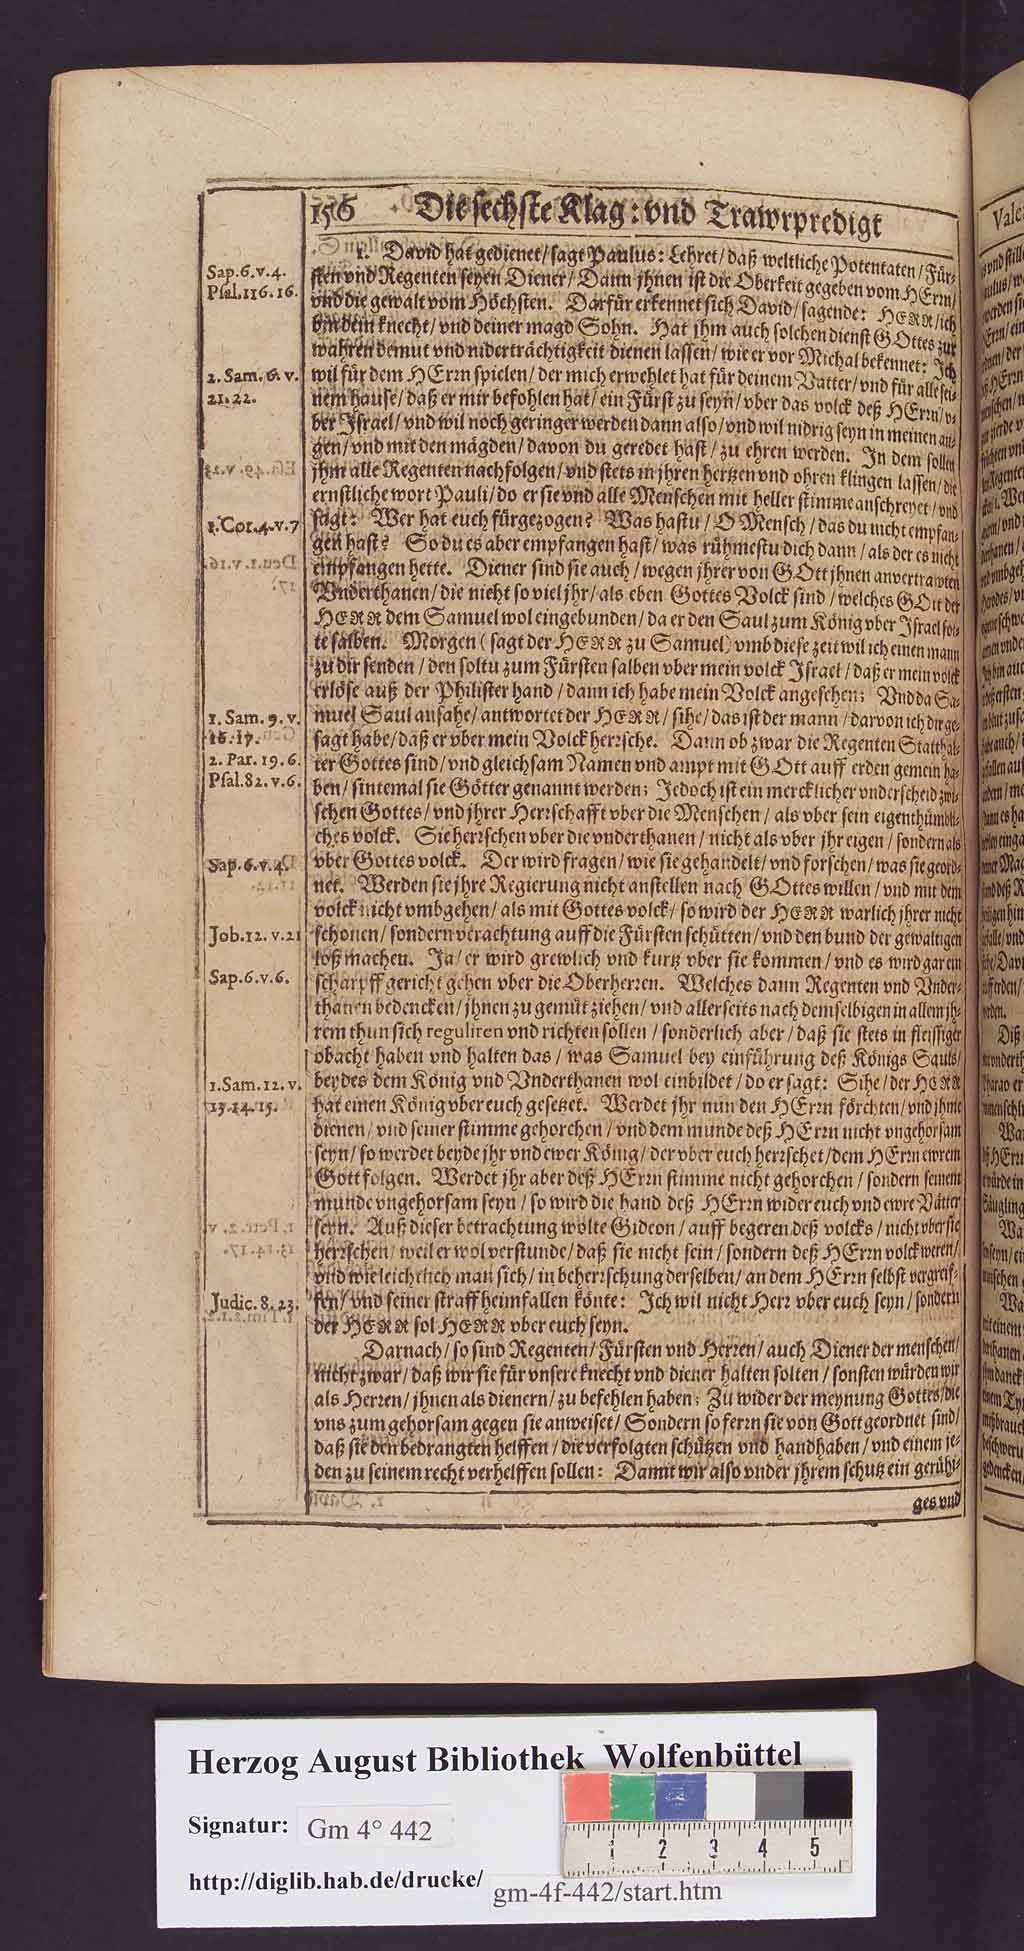 156 Die sechste Klag: vnd Trawrpredigt
1. David hat gedienet / sagt Paulus: Lehret / daß weltliche Potentaten / Für-
sten vnd Regenten seyen Diener / Dann jhnen ist die Oberkeit gegeben vom HErrn /
Sap. 6. v. 4.
Psal. 116. 16.
vnd die gewalt vom Höchsten. Darfür erkennet sich David / sagende: HERR / ich
bin dein knecht / vnd deiner magd Sohn. Hat jhm auch solchen dienst GOttes zur
wahren demut vnd niderträchtigkeit dienen lassen / wie er vor Michal bekennet: Ich
2. Sam. 6. v.
21. 22.
wil für dem HErrn spielen / der mich erwehlet hat für deinem Vatter / vnd für alle sei-
nem hause / daß er mir befohlen hat / ein Fürst zu seyn / vber das volck deß HErrn / v-
ber Israel / vnd wil noch geringer werden dann also / vnd wil nidrig seyn in meinen au-
gen / vnd mit den mägden / davon du geredet hast / zu ehren werden. In dem sollen
jhm alle Regenten nachfolgen / vnd stets in jhren hertzen vnd ohren klingen lassen / die
ernstliche wort Pauli / do er sie vnd alle Menschen mit heller stimme anschreyet / vnd
1. Cor. 4. v. 7
sagt: Wer hat euch fürgezogen? Was hastu / O Mensch / das du nicht empfan-
gen hast? So du es aber empfangen hast / was rühmestu dich dann / als der es nicht
empfangen hette. Diener sind sie auch / wegen jhrer von GOtt jhnen anvertrawten
Vnderthanen / die nicht so viel jhr / als eben Gottes Volck sind / welches GOtt der
HERR dem Samuel wol eingebunden / da er den Saul zum König vber Israel sol-
te salben. Morgen (sagt der HERR zu Samuel) vmb diese zeit wil ich einen mann
zu dir senden / den soltu zum Fürsten salben vber mein volck Israel / daß er mein volck
erlöse auß der Philister hand / dann ich habe mein Volck angesehen; Vnd da Sa-
1. Sam. 9. v.
16. 17.
muel Saul ansahe / antwortet der HERR / sihe / das ist der mann / darvon ich dir ge-
sagt habe / daß er vber mein Volck herrsche. Dann ob zwar die Regenten Statthal-
2. Par. 19. 6.
Psal. 82. v. 6.
ter Gottes sind / vnd gleichsam Namen vnd ampt mit GOtt auff erden gemein ha-
ben / sintemal sie Götter genannt werden; Jedoch ist ein mercklicher vnderscheid zwi-
schen Gottes / vnd jhrer Herrschafft vber die Menschen / als vber sein eigenthümbli-
ches volck. Sie herrschen vber die vnderthanen / nicht als vber jhr eigen / sondern als
Sap. 6. v. 4.
vber Gottes volck. Der wird fragen / wie sie gehandelt / vnd forschen / was sie geord-
net. Werden sie jhre Regierung nicht anstellen nach GOttes willen / vnd mit dem
volck nicht vmbgehen / als mit Gottes volck / so wird der HERR warlich jhrer nicht
Job. 12. v. 21
schonen / sondern verachtung auff die Fürsten schütten / vnd den bund der gewaltigen
loß machen. Ja / er wird grewlich vnd kurtz vber sie kommen / vnd es wird gar ein
Sap. 6. v. 6.
scharpff gericht gehen vber die Oberherren. Welches dann Regenten vnd Vnder-
thanen bedencken / jhnen zu gemüt ziehen / vnd allerseits nach demselbigen in allem jh-
rem thun sich reguliren vnd richten sollen / sonderlich aber / daß sie stets in fleissiger
obacht haben vnd halten das / was Samuel bey einführung deß Königs Sauls /
1. Sam. 12. v.
13. 14. 15.
beydes dem König vnd Vnderthanen wol einbildet / do er sagt: Sihe / der HERR
hat einen König vber euch gesetzet. Werdet jhr nun den HErrn förchten / vnd jhme
dienen / vnd seiner stimme gehorchen / vnd dem munde deß HErrn nicht vngehorsam
seyn / so werdet beyde jhr vnd ewer König / der vber euch herrschet / dem HErrn ewrem
Gott folgen. Werdet jhr aber deß HErrn stimme nicht gehorchen / sondern seinem
munde vngehorsam seyn / so wird die hand deß HErrn wider euch vnd ewre Vätter
seyn. Auß dieser betrachtung wolte Gideon / auff begeren deß volcks / nicht vber sie
herrschen / weil er wol verstunde / daß sie nicht sein / sondern deß HErrn volck weren /
vnd wie leichtlich man sich / in beherrschung derselben / an dem HErrn selbst vergreif-
Judic. 8. 23.
fen / vnd seiner straff heimfallen könte: Ich wil nicht Herr vber euch seyn / sondern
der HERR sol HERR vber euch seyn.
Darnach / so sind Regenten / Fürsten vnd Herren / auch Diener der menschen /
nicht zwar / daß wir sie für vnsere knecht vnd diener halten solten / sonsten würden wir
als Herren / jhnen als dienern / zu befehlen haben; Zu wider der meynung Gottes / die
vns zum gehorsam gegen sie anweiset / Sondern so fern sie von Gott geordnet sind /
daß sie den bedrangten helffen / die verfolgten schützen vnd handhaben / vnd einem je-
den zu seinem recht verhelffen sollen: Damit wir also vnder jhrem schutz ein gerühi-
ges vnd
Herzog August Bibliothek Wolfenbüttel
Signatur: Gm 4° 442
http://diglib.hab.de/drucke/ gm-4f-442/start.htm
1 2 3 4 5